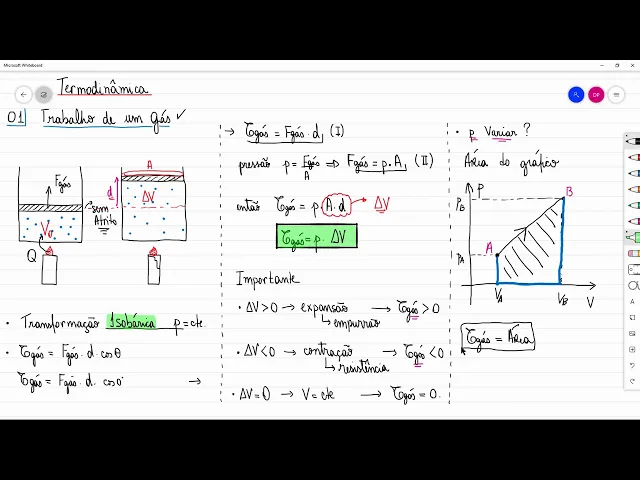 Microsoft Whiteboard
Termodinâmica
01 Trabalho de um gás
A
Fgás
d
ΔV
sem
Atrito
V₀
Q
• Transformação Isobárica p = cte.
• τgás = Fgás · d · cosθ
τgás = Fgás · d · cos0° →
→ τgás = Fgás · d, (I)
pressão p = Fgás/A → Fgás = p. A, (II)
então τgás = p A. d → ΔV
τgás = p · ΔV
Importante
• ΔV > 0 → expansão → τgás > 0
↳ empurrão
• ΔV < 0 → contração → τgás < 0
↳ resistência
• ΔV = 0 → V = cte → τgás = 0.
• p Variar ?
Área do gráfico
P
B
PB
A
PA
VA
VB
V
τgás = Área
DP